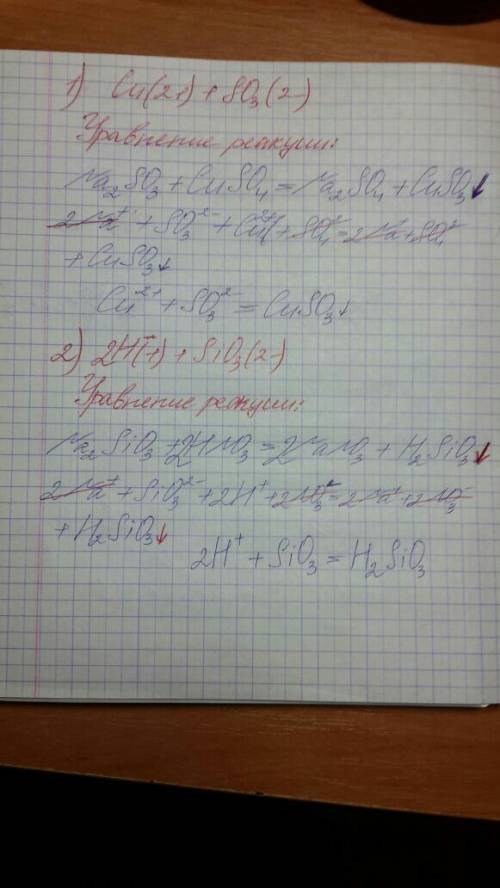 1) Cu(2+) + SO₃(2-)
Уравнение реакции:
Na₂SO₃ + CuSO₄ = Na₂SO₄ + CuSO₃↓
2Na⁺ + SO₃²⁻ + Cu²⁺ + SO₄²⁻ = 2Na⁺ + SO₄²⁻
+ CuSO₃↓
Cu²⁺ + SO₃²⁻ = CuSO₃↓
2) 2H(+) + SiO₃(2-)
Уравнение реакции:
Na₂SiO₃ + 2HNO₃ = 2NaNO₃ + H₂SiO₃↓
2Na⁺ + SiO₃²⁻ + 2H⁺ + 2NO₃⁻ = 2Na⁺ + 2NO₃⁻
+ H₂SiO₃↓
2H⁺ + SiO₃ = H₂SiO₃